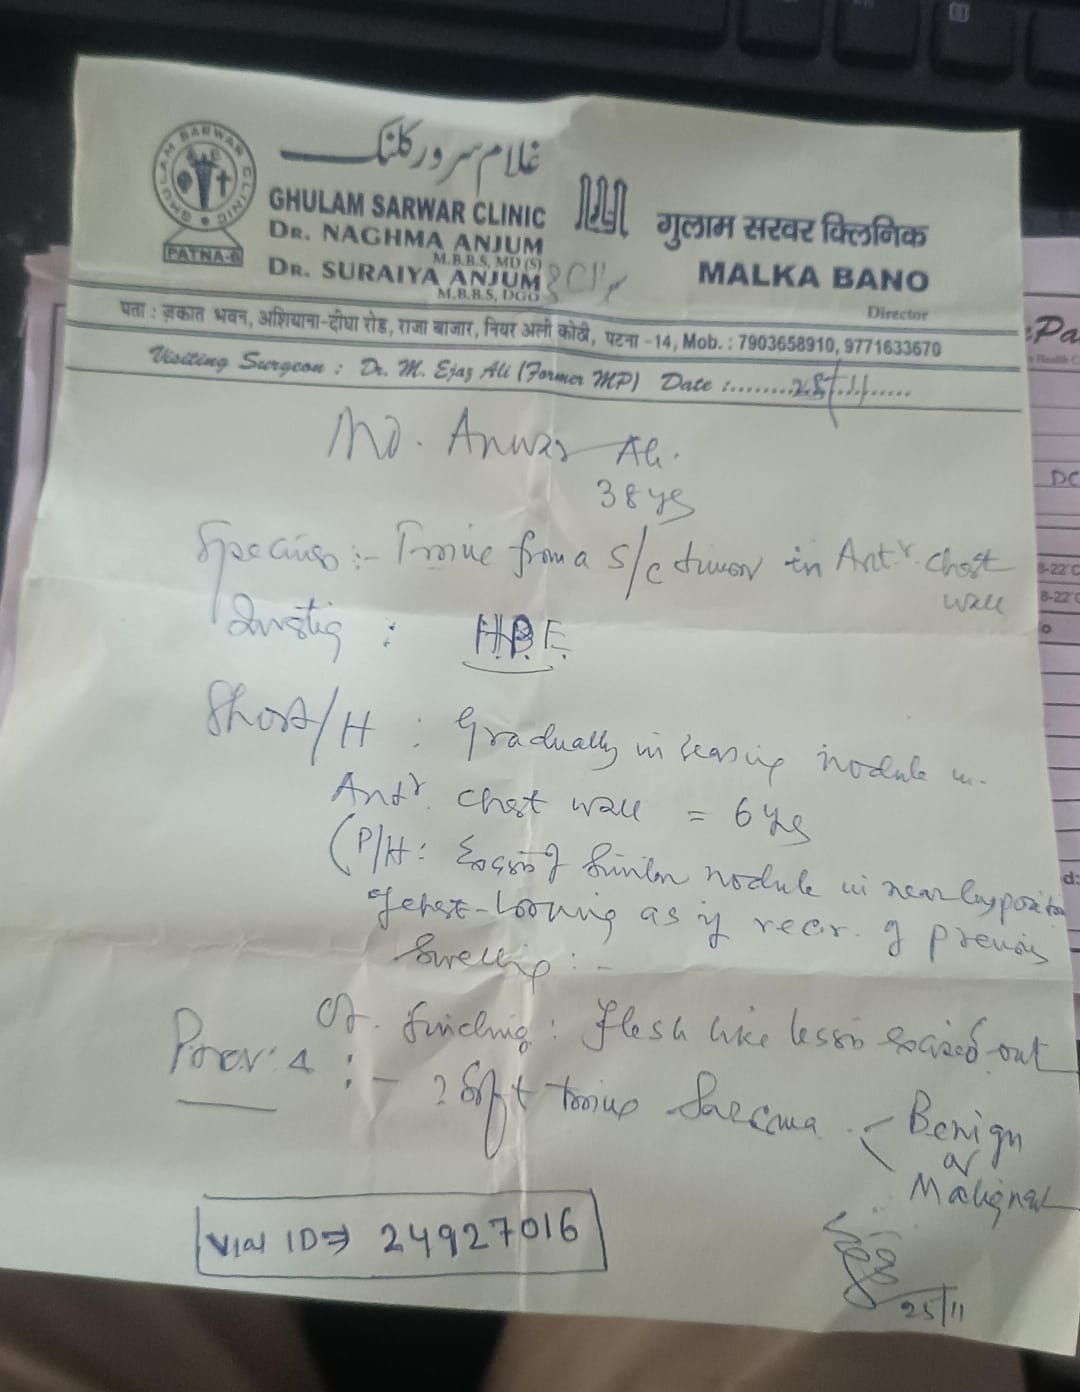 GHULAM SARWAR CLINIC
PATNA-6
غلام سرور کلنک
GHULAM SARWAR CLINIC
DR. NAGHMA ANJUM
M.B.B.S, MD (S)
DR. SURAIYA ANJUM
M.B.B.S, DGO
गुलाम सरवर क्लिनिक
MALKA BANO
Director
पता : ज़कात भवन, अशियाना-दीघा रोड, राजा बाजार, नियर अली कोठी, पटना -14, Mob. : 7903658910, 9771633670
Visiting Surgeon : Dr. M. Ejaz Ali (Former MP) Date :........25/11......
MD. Anwar Ali.
38 ys
:- Tissue from a s/c tumor in Antr. chest
wall
: H.P.E.
Short/H : Gradually increasing nodule in
Antr. chest wall = 6 ys
(P/H: Excision of similar nodule in nearby position
of chest - looking as if recur. of previous
Swelling :-
Of. finding : Flesh like lesion excised out
Prov. Δ :- ? Soft tissue Sarcoma < Benign
or
Malignant
Vial ID⇒ 24927016
25/11
Pa
DC
8-22'C
8-22'C
d: